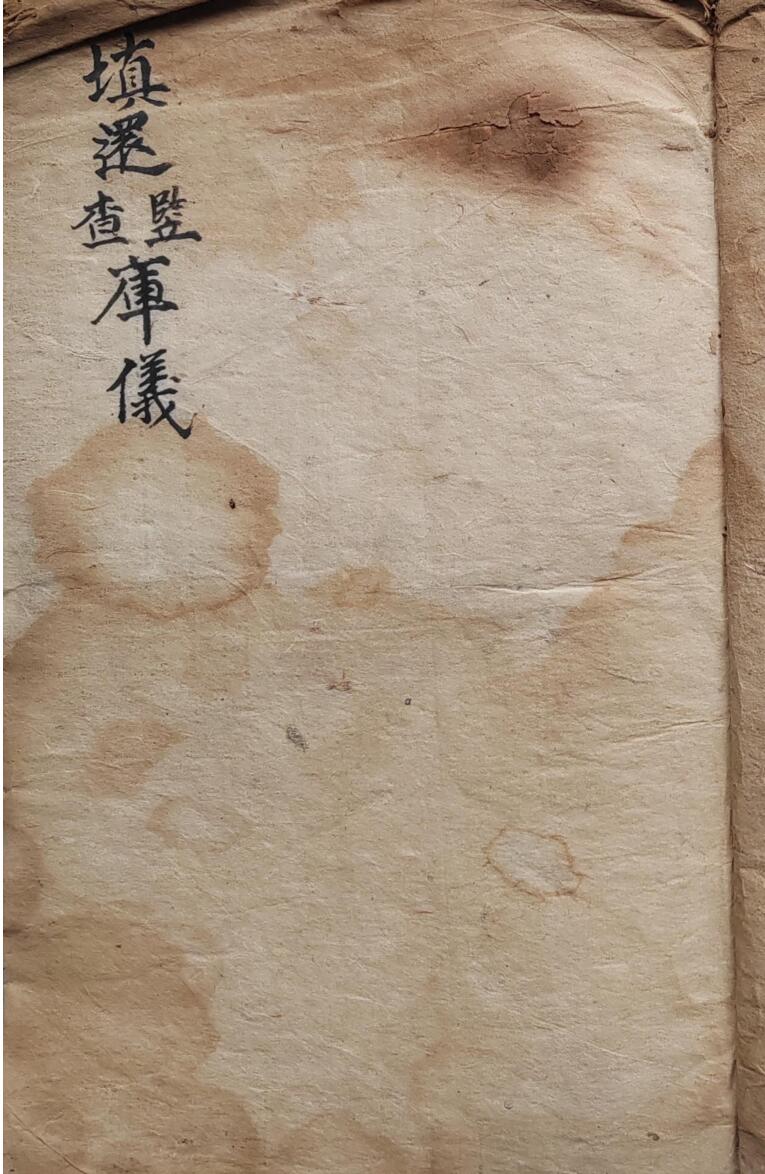 填還竪查庫儀